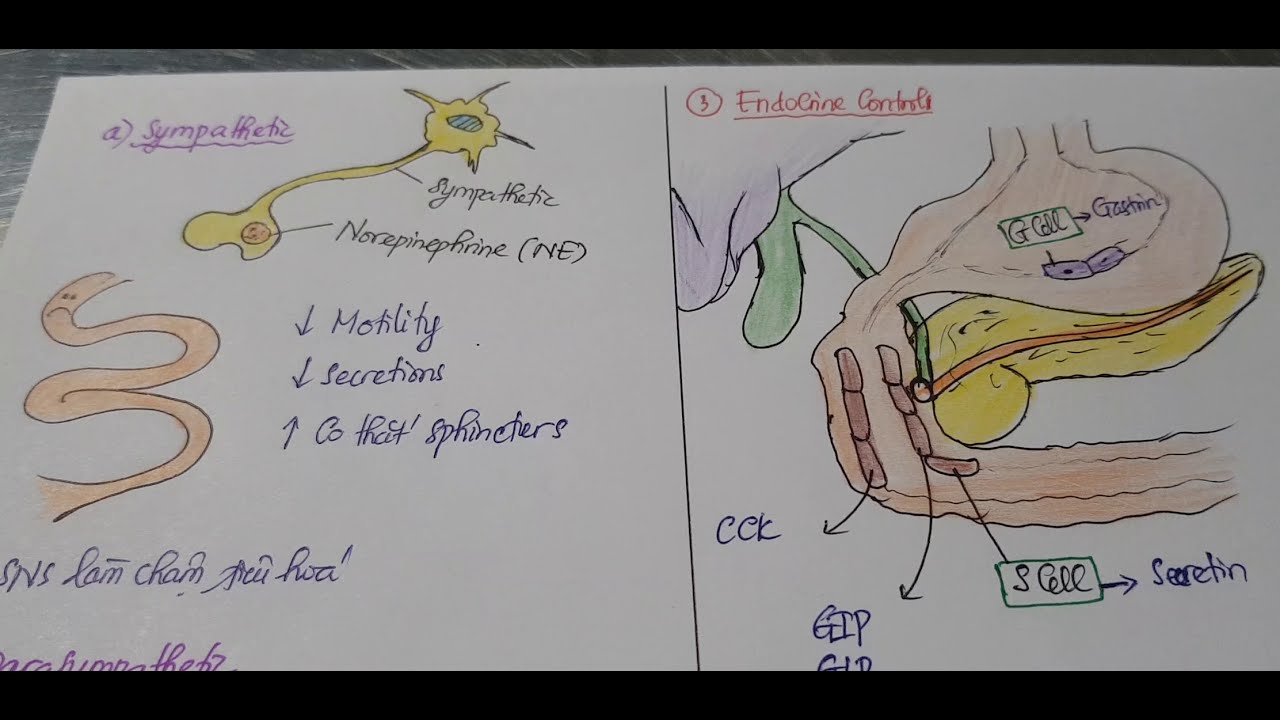 a) Sympathetic
Sympathetic
Norepinephrine (NE)
↓ Motility
↓ Secretions
↑ Co thắt sphincters
SNS làm chậm tiêu hoá
Parasympathetic
③ Endocrine Controls
G Cell → Gastrin
CCK
S Cell → Secretin
GIP